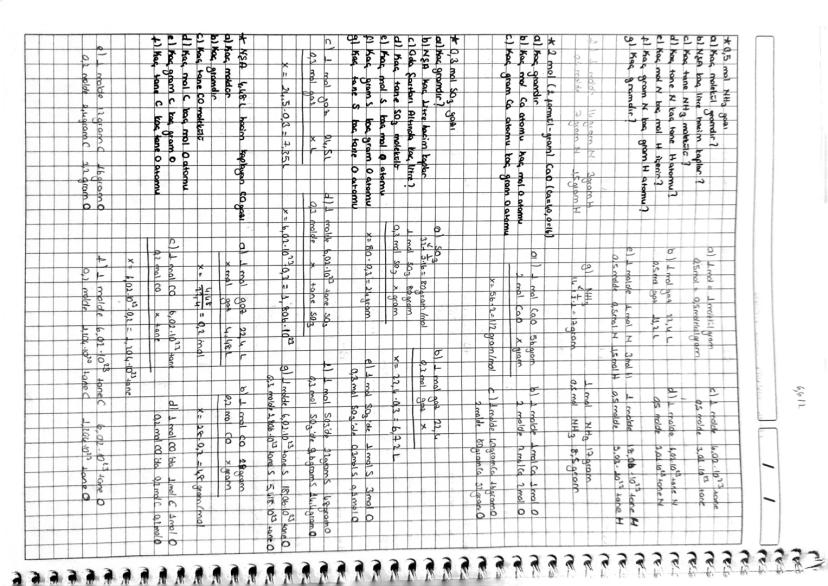 * 0,5 mol NH₃ gazı
a) Kaç molekül gramdır?
b) N.Ş.A kaç litre hacim kaplar?
c) Kaç tane NH₃ molekülü?
d) Kaç tane N kaç tane H atomu?
e) Kaç mol N kaç mol H içerir?
f) Kaç gram N kaç gram H atomu?
g) Kaç gramdır?
a) 1 mol = 1 molekül gram
0,5 mol = 0,5 molekül gram
b) 1 mol gaz 22,4 L
0,5 mol gaz 11,2 L
c) 1 molde 6,02·10²³ tane
0,5 molde 3,01·10²³ tane
e) 1 molde 1 mol N 3 mol H
0,5 molde 0,5 mol N 1,5 mol H
g) NH₃
1 mol NH₃ 17 gram
0,5 mol NH₃ 8,5 gram
* 2 mol (2 formül-gram) CaO (Ca=40, O=16)
a) Kaç gramdır
b) Kaç mol Ca atomu kaç mol O atomu
c) Kaç gram Ca atomu kaç gram O atomu
a) 1 mol CaO 56 gram
2 mol CaO x gram
x = 56·2 = 112 gram/mol
b) 1 molde 1 mol Ca 1 mol O
2 molde 2 mol Ca 2 mol O
c) 1 molde 40 gram Ca 16 gram O
2 molde 80 gram Ca 32 gram O
* 0,3 mol SO₃ gazı
a) Kaç gramdır?
b) N.Ş.A Kaç Litre hacim kaplar
c) Oda Şartları Altında kaç litre?
d) Kaç tane SO₃ molekülü
e) Kaç mol S kaç mol O atomu
f) Kaç gram S kaç gram O atomu
g) Kaç tane S kaç tane O atomu
a) SO₃
32+3·16=80 gram/mol
1 mol SO₃ 80 gram
0,3 mol SO₃ x gram
x = 80·0,3 = 24 gram
b) 1 mol gaz 22,4
0,3 mol gaz x
x = 22,4·0,3 = 6,72 L
c) 1 mol gaz 24,5 L
0,3 mol gaz x L
x = 24,5·0,3 = 7,35 L
d) 1 molde 6,02·10²³ tane SO₃
0,3 molde x tane SO₃
x = 6,02·10²³·0,3 = 1,806·10²³
e) 1 mol SO₃'de 1 mol S 3 mol O
0,3 mol SO₃'de 0,3 mol S 0,9 mol O
f) 1 mol SO₃'de 32 gram S 48 gram O
0,3 mol SO₃'de 9,6 gram S 14,4 gram O
g) 1 molde 6,02·10²³ tane S 18,06·10²³ tane O
0,3 molde 1,806·10²³ tane S 5,418·10²³ tane O
* N.Ş.A 4,48 L hacim kaplayan CO gazı
a) Kaç moldür
b) Kaç gramdır
c) Kaç tane CO molekülü
d) Kaç mol C kaç mol O atomu
e) Kaç gram C kaç gram O
f) Kaç tane C kaç tane O atomu
a) 1 mol gaz 22,4 L
x mol gaz 4,48 L
x = 4,48/22,4 = 0,2 mol
b) 1 mol CO 28 gram
0,2 mol CO x gram
c) 1 mol CO 6,02·10²³ tane
0,2 mol CO x tane
x = 6,02·10²³·0,2 = 1,204·10²³ tane
d) 1 mol CO'da 1 mol C 1 mol O
0,2 mol CO'da 0,2 mol C 0,2 mol O
e) 1 molde 12 gram C 16 gram O
0,2 molde 2,4 gram C 3,2 gram O
f) 1 molde 6,02·10²³ tane C 6,02·10²³ tane O
0,2 molde 1,204·10²³ tane C 1,204·10²³ tane O